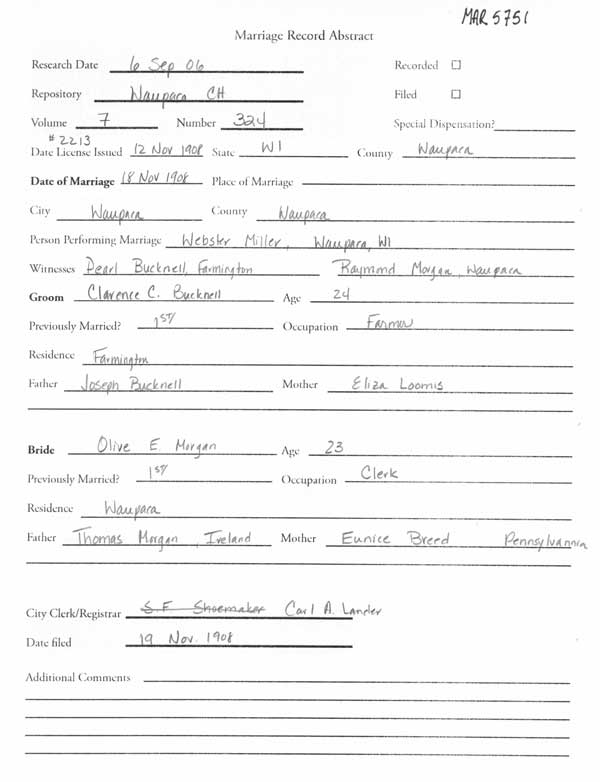 MAR 5751
Marriage Record Abstract
Research Date 6 Sep 06 Recorded
Repository Waupaca CH Filed
Volume 7 Number 324 Special Dispensation?
# 2213
Date License Issued 12 Nov 1908 State WI County Waupaca
Date of Marriage 18 Nov 1908 Place of Marriage
City Waupaca County Waupaca
Person Performing Marriage Webster Miller, Waupaca, WI
Witnesses Pearl Bucknell, Farmington Raymond Morgan, Waupaca
Groom Clarence C. Bucknell Age 24
Previously Married? 1st Occupation Farmer
Residence Farmington
Father Joseph Bucknell Mother Eliza Loomis
Bride Olive E. Morgan Age 23
Previously Married? 1st Occupation Clerk
Residence Waupaca
Father Thomas Morgan, Ireland Mother Eunice Breed Pennsylvannia
City Clerk/Registrar S F Shoemaker Carl A. Lander
Date filed 19 Nov. 1908
Additional Comments